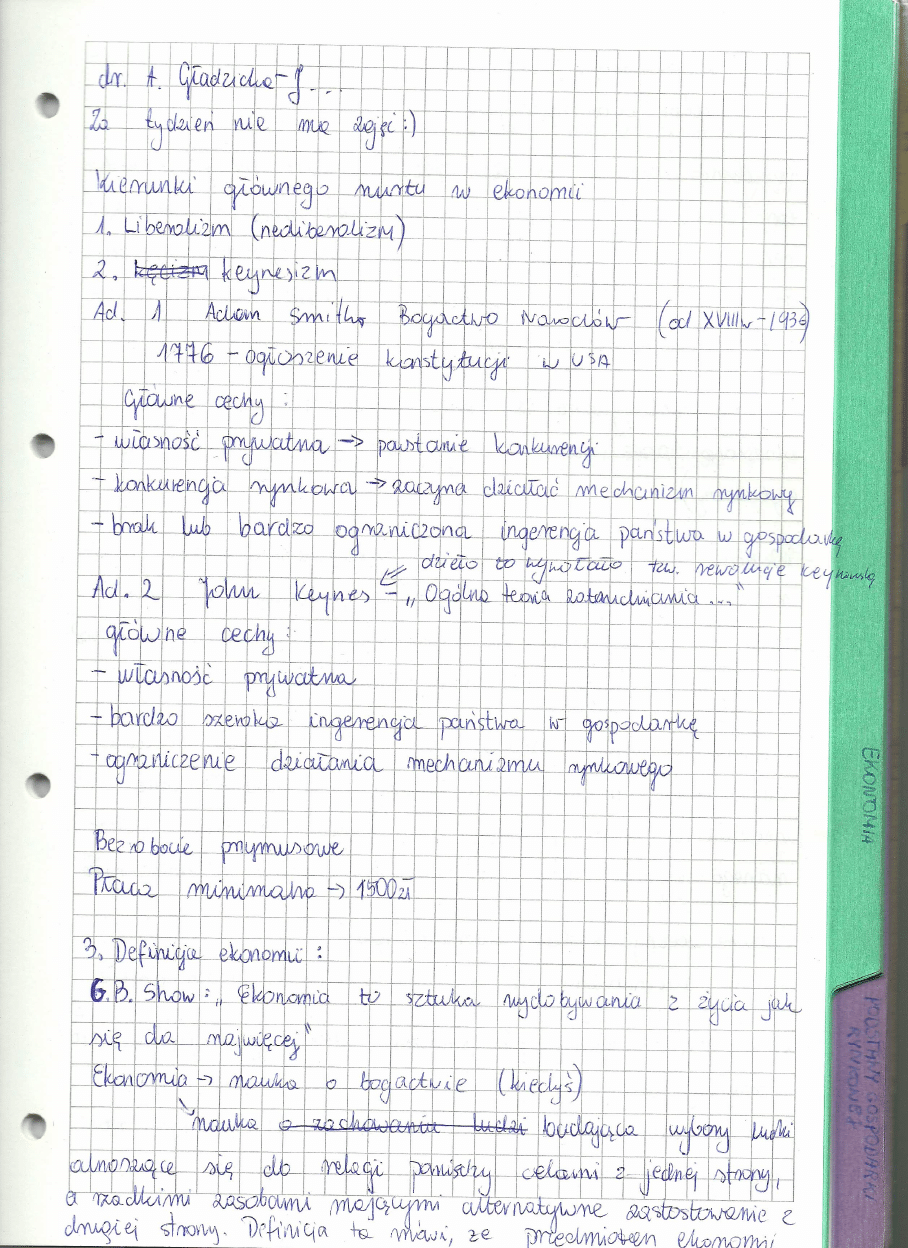 dr. A. Gładzicka-J...
Za tydzień nie ma zajęć :)
Kierunki głównego nurtu w ekonomii
1. Liberalizm (neoliberalizm)
2. keynesizm
Ad. 1 Adam Smith Bogactwo Narodów (od XVIIIw - 1936)
1776 - ogłoszenie konstytucji w USA
Główne cechy :
- własność prywatna → powstanie konkurencji
- konkurencja rynkowa → zaczyna działać mechanizm rynkowy
- brak lub bardzo ograniczona ingerencja państwa w gospodarkę
dzieło to wywołało tzw. rewolucje keynowską
Ad. 2 John Keynes - „Ogólna teoria zatrudniania ..."
główne cechy :
- własność prywatna
- bardzo szeroka ingerencja państwa w gospodarkę
- ograniczenie działania mechanizmu rynkowego
Bezrobocie przymusowe
Płaca minimalna → 1500zł
3. Definicja ekonomii :
G.B. Show : „Ekonomia to sztuka wydobywania z życia jak
się da najwięcej"
Ekonomia → nauka o bogactwie (kiedyś)
nauka o zachowaniu ludzi badająca wybory ludzi
odnoszące się do relacji pomiędzy celami z jednej strony,
a rzadkimi zasobami mającymi alternatywne zastostowanie z
drugiej strony. Definicja ta mówi, że przedmiotem ekonomii
EKONOMIA
PODSTAWY GOSPODARKI
RYNKOWEJ